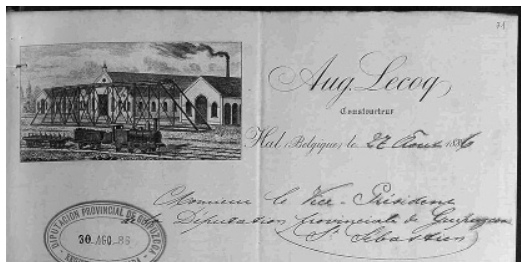 71
Aug. Lecoq
Constructeur
Hal, (Belgique) le 27 Aout 1886
Monsieur le Vice-Président
de la Députation provinciale de Guipuzcoa
St Sébastien
DIPUTACION PROVINCIAL DE GUIPUZCOA
30 AGO 86